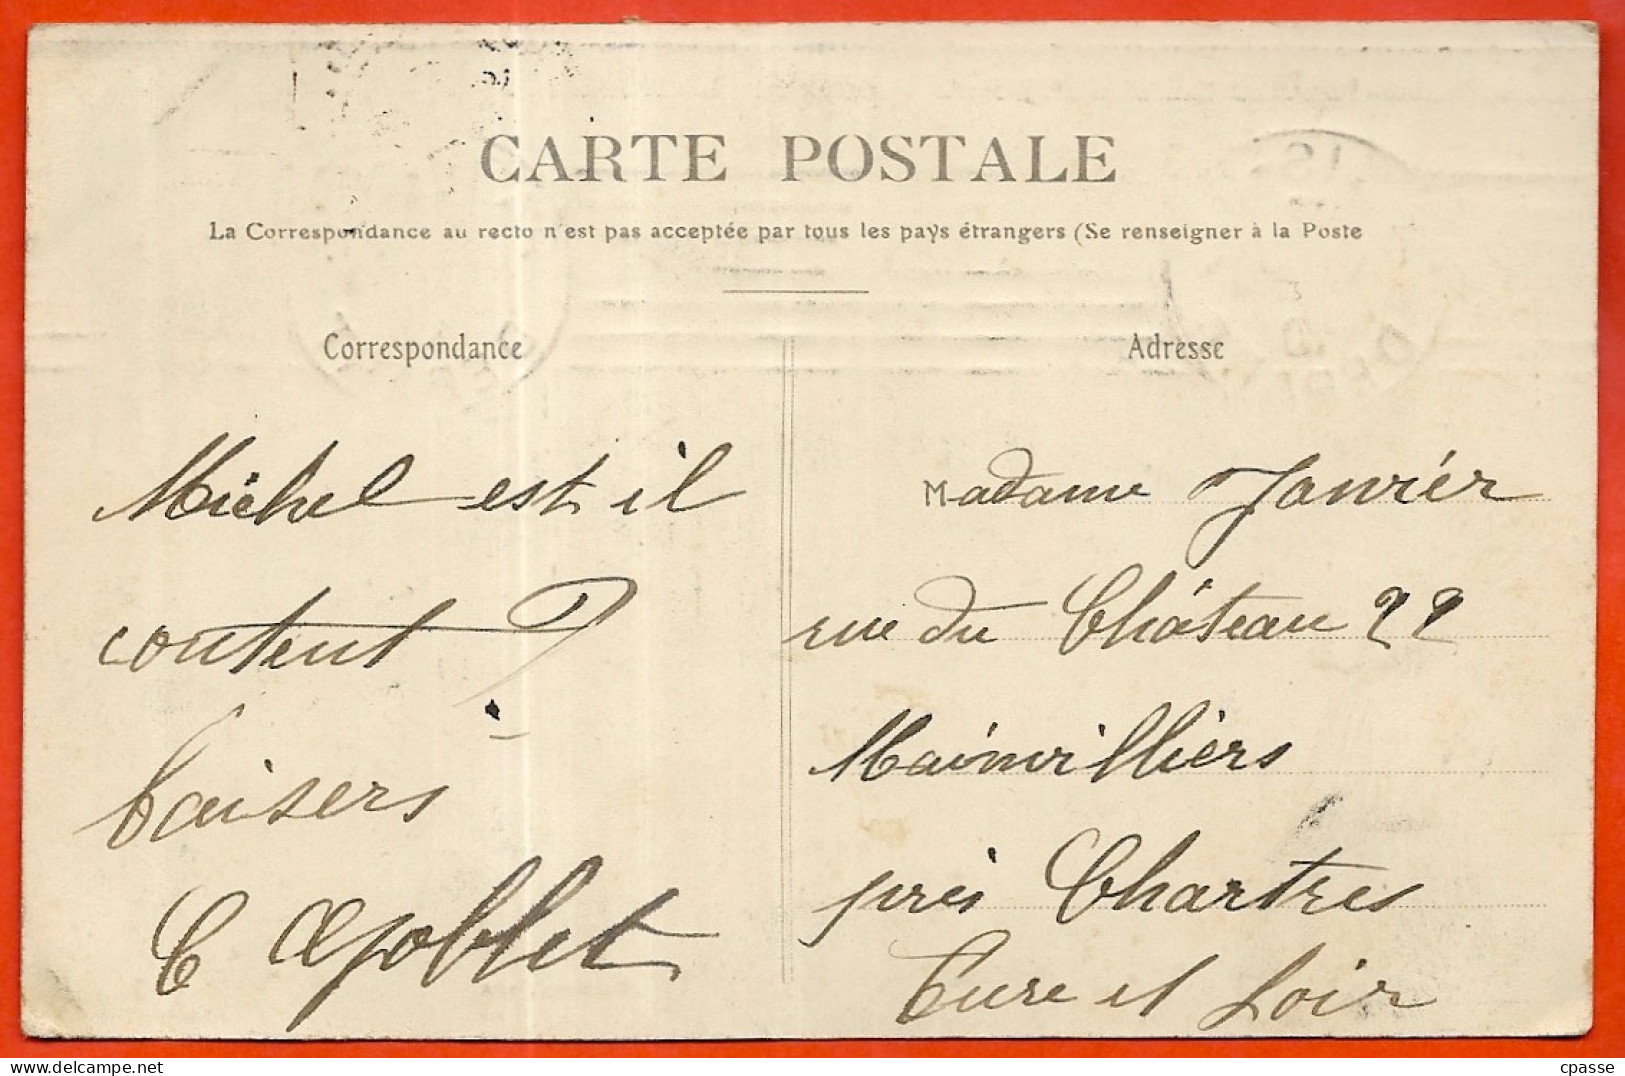 CARTE POSTALE
La Correspondance au recto n'est pas acceptée par tous les pays étrangers (Se renseigner à la Poste
Correspondance
Michel est il
content ?
baisers
C Goblet
Adresse
Madame Janvier
rue du Château 22
Mainvilliers
près Chartres
Eure et Loir
cpasse